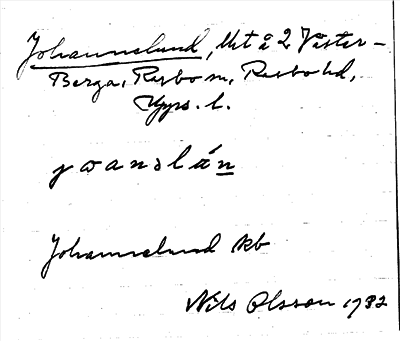 Johanneslund, lht å 2 Väster-
Berga, Rasbo sn, Rasbo hd,
Upps. l.
jɷanslán
Johanneslund kb
Nils Olsson 1932